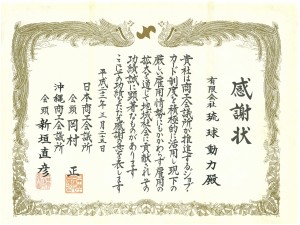 感謝状
有限会社 琉球動力殿
貴社は商工会議所が推進するジョブ・
カード制度を積極的に活用し現下の
厳しい雇用情勢にもかかわらず雇用の
拡大を通じ地域社会に貢献されその
功績誠に顕著なものがあります
ここにその功績をたたえ感謝の意を表します
平成二十二年三月二十五日
日本商工会議所
会頭 岡村 正
沖縄商工会議所
会頭 新垣直彦